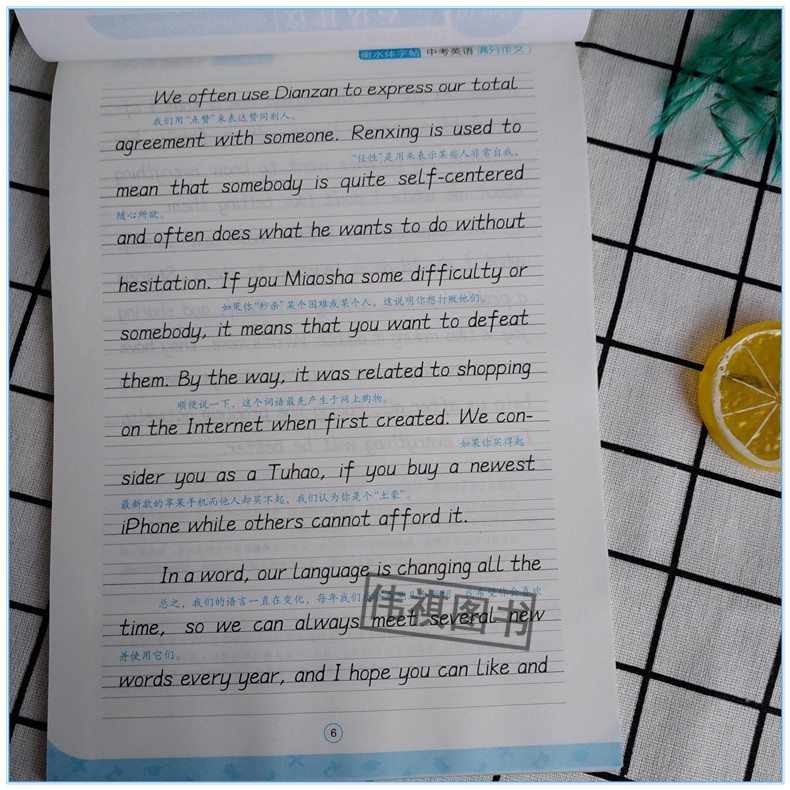 衡水体字帖 中考英语 满分作文
We often use Dianzan to express our total
我们用“点赞”来表达赞同别人。
agreement with someone. Renxing is used to
“任性”是用来表示某些人非常自我，
mean that somebody is quite self-centered
随心所欲。
and often does what he wants to do without
hesitation. If you Miaosha some difficulty or
如果你“秒杀”某个困难或某个人，这说明你想打败他们。
somebody, it means that you want to defeat
them. By the way, it was related to shopping
顺便说一下，这个词语最先产生于网上购物。
on the Internet when first created. We con-
如果你买得起
sider you as a Tuhao, if you buy a newest
最新款的苹果手机而他人却买不起，我们认为你是个“土豪”。
iPhone while others cannot afford it.
In a word, our language is changing all the
总之，我们的语言一直在变化，每年我们
time, so we can always meet several new
并使用它们
words every year, and I hope you can like and
6
伟祺图书